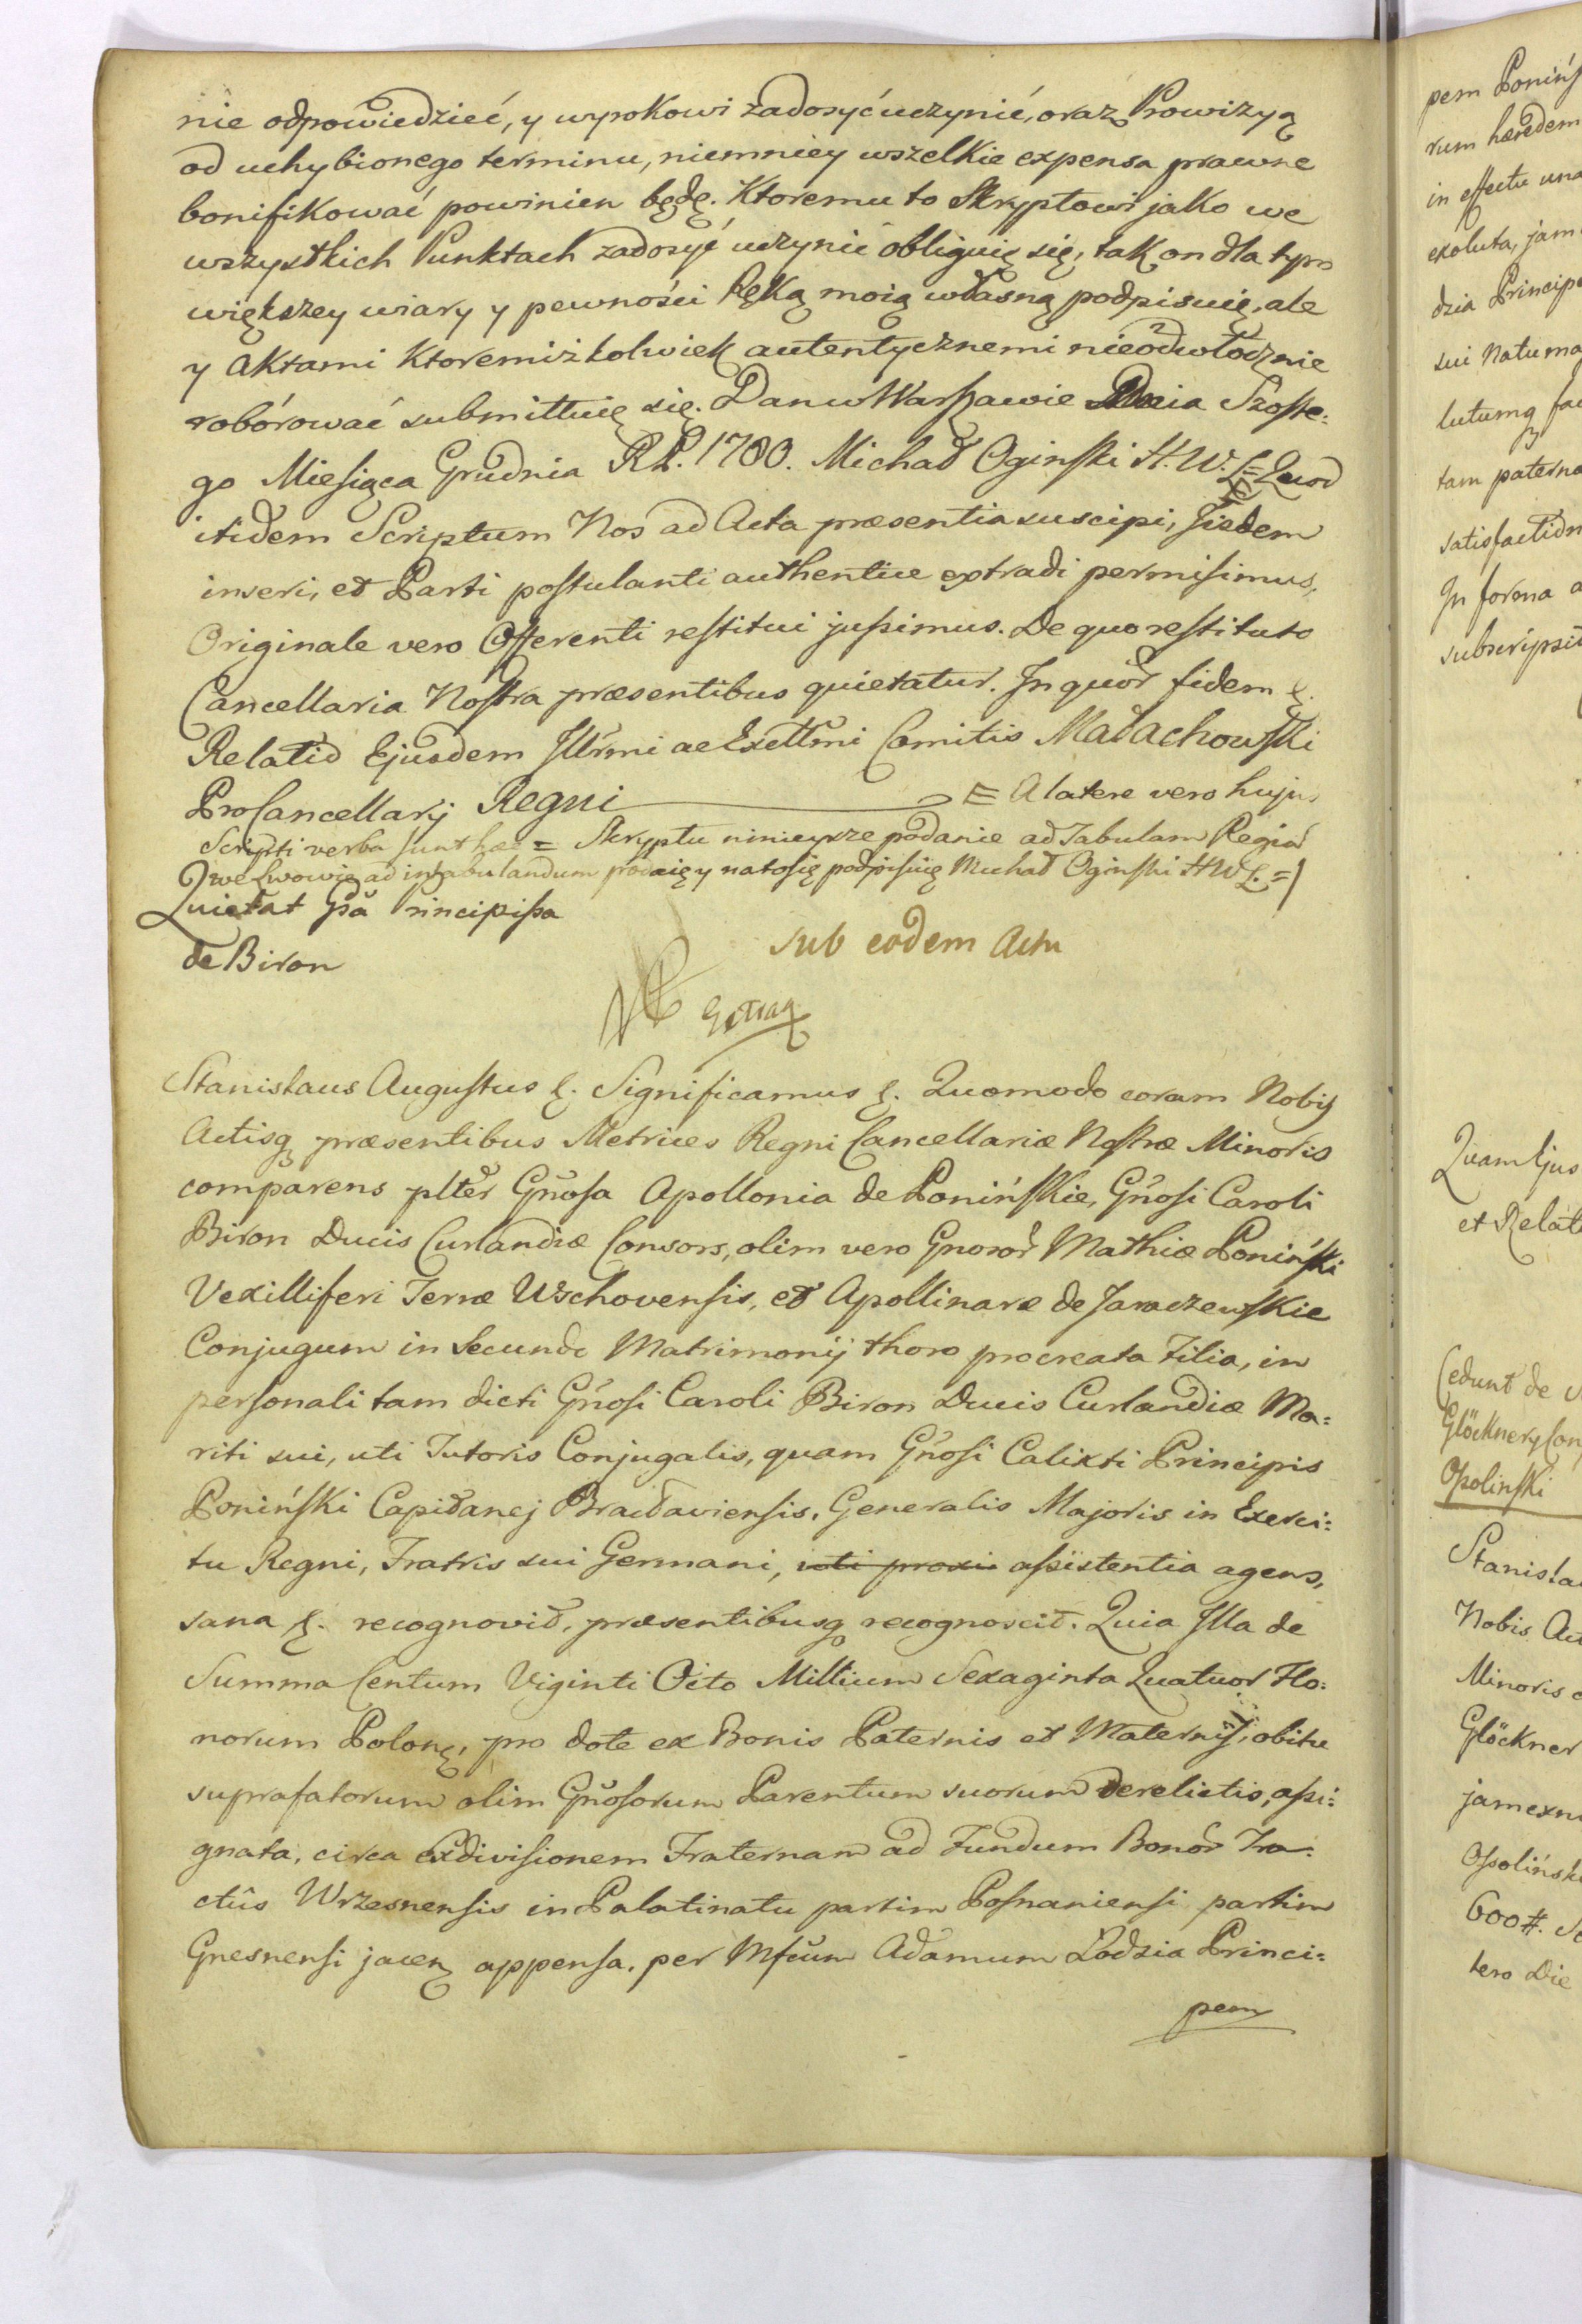 nie odpowiedzieć, y wyrokowi zadosyć uczynić, oraz Prowizyą
od uchybionego terminu, niemniey wszelkie expensa prawne
bonifikować powinien będę. Ktoremu to Skryptowi jako we
wszystkich Punktach zadosyć uczynić obliguię się, tak on dla tym
większey wiary y pewności Ręką moią własną podpisuię, ale
y Aktami Ktoremiżkolwiek autentycznemi nieodwłocznie
roborować submittuię się. Dan w Warszawie Dnia Szoste-
go Miesiąca Grudnia R.P. 1780. Michał Oginski H.W.L. = Quod
itidem Scriptum Nos ad Acta præsentia suscipi, Iisdem
inseri, et Parti postulanti authentice extradi permisimus,
Originale vero Offerenti restitui jussimus. De quo restituto
Cancellaria Nostra præsentibus quietatur. In quor fidem &.
Relatio Ejusdem Illrmi ac Exellmi Comitis Małachowski
ProCancellarij Regni = A latere vero hujus
Scripti verba sunt hæc = Skryptu ninieysze podanie ad Tabulam Regiã
we Lwowie ad intabulandum podaię y na to się podpisuię Michał Oginski HWL. =
Quietat Gsã Principissa
de Biron
sub eodem Actu
Stanislaus Augustus &. Significamus &. Quomodo coram Nobis
Actisq præsentibus Metrices Regni Cancellariæ Nostræ Minoris
comparens pltěr Gňosa Apollonia de Ponińskie, Gňosi Caroli
Biron Ducis Curlandiæ Consors, olim vero Gnosor Mathiæ Poniński
Vexilliferi Terræ Wschovensis, et Apollinaræ de Jaraczewskie
Conjugum in Secundo Matrimonij thoro procreata Filia, in
personali tam dicti Gňosi Caroli Biron Ducis Curlandiæ Ma=
riti sui, uti Tutoris Conjugalis, quam Gňosi Calixti Principis
Poniński Capitanej Bracłaviensis, Generalis Majoris in Exerci=
tu Regni, Fratris sui Germani, assistentia agens,
sana &. recognovit, præsentibusq recognoscit. Quia Illa de
Summa Centum Viginti Octo Millium Sexaginta Quatuor Flo=
norum Polonę, pro dote ex Bonis Paternis et Maternis, obitu
suprafatorum olim Gňosorum Parentum suorum derelictis, assi=
gnata, circa Exdivisionem Fraternam ad Fundum Bonor Tra=
ctûs Wrzesnensis in Palatinatu partim Posnaniensi partim
Gnesnensi jacen appensa, per Mfcum Adamum Łodzia Princi=
pem
pem Ponińs
rum hæredem
in effectu una
exoluta, jam
dzia Principe
sui Natu ma
lutumq fac
tam paterna
satisfaction
In forma a
subscripsit
Quam Ejus
et Relat
Cedunt de
Glöckner Con
Opolinski
Stanisla
Nobis Act
Minoris c
Glöckner
jam exn
Ossolińsk
600#. Se
tero Die